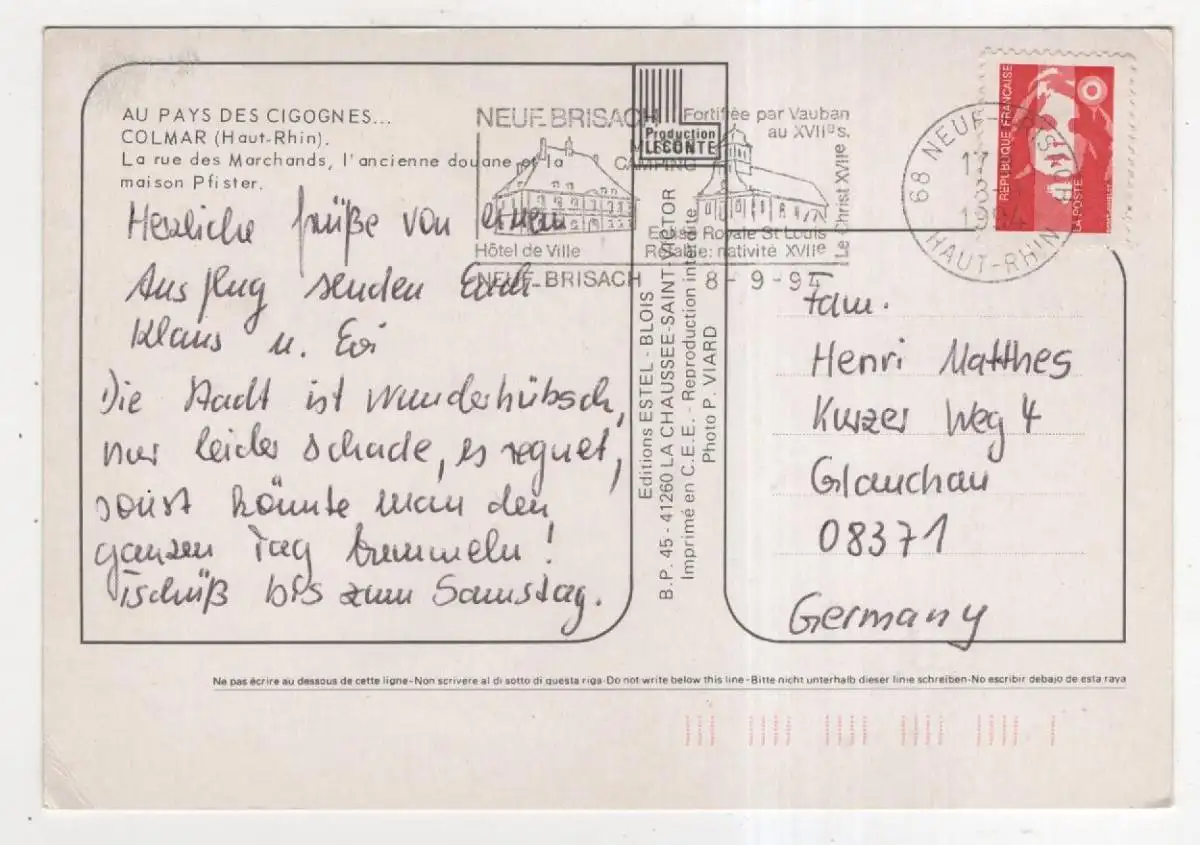 AU PAYS DES CIGOGNES...
COLMAR (Haut-Rhin).
La rue des Marchands, l'ancienne douane et la
maison Pfister.
Herzliche Grüße von einem
Ausflug senden Euch
Klaus u. Evi
Die Stadt ist wunderhübsch,
nur leider schade, es regnet,
sonst könnte man den
ganzen Tag bummeln!
Tschüß bis zum Samstag.
NEUF BRISACH
Fortifiée par Vauban
au XVIIe s.
CAMPING
Hôtel de Ville
Eglise Royale St Louis
Retable: nativité XVIIe
Le Christ XVIIe s.
NEUF-BRISACH 8-9-94
Production
LECONTE
Editions ESTEL - BLOIS
B.P. 45 - 41260 LA CHAUSSEE-SAINT-VICTOR
Imprimé en C.E.E. - Reproduction interdite
Photo P. VIARD
68 NEUF-BRISACH
17
8
1994
HAUT-RHIN
REPUBLIQUE FRANÇAISE
LA POSTE
Fam.
Henri Matthes
Kurzer Weg 4
Glauchau
08371
Germany
Ne pas écrire au dessous de cette ligne-Non scrivere al di sotto di questa riga-Do not write below this line-Bitte nicht unterhalb dieser linie schreiben-No escribir debajo de esta raya